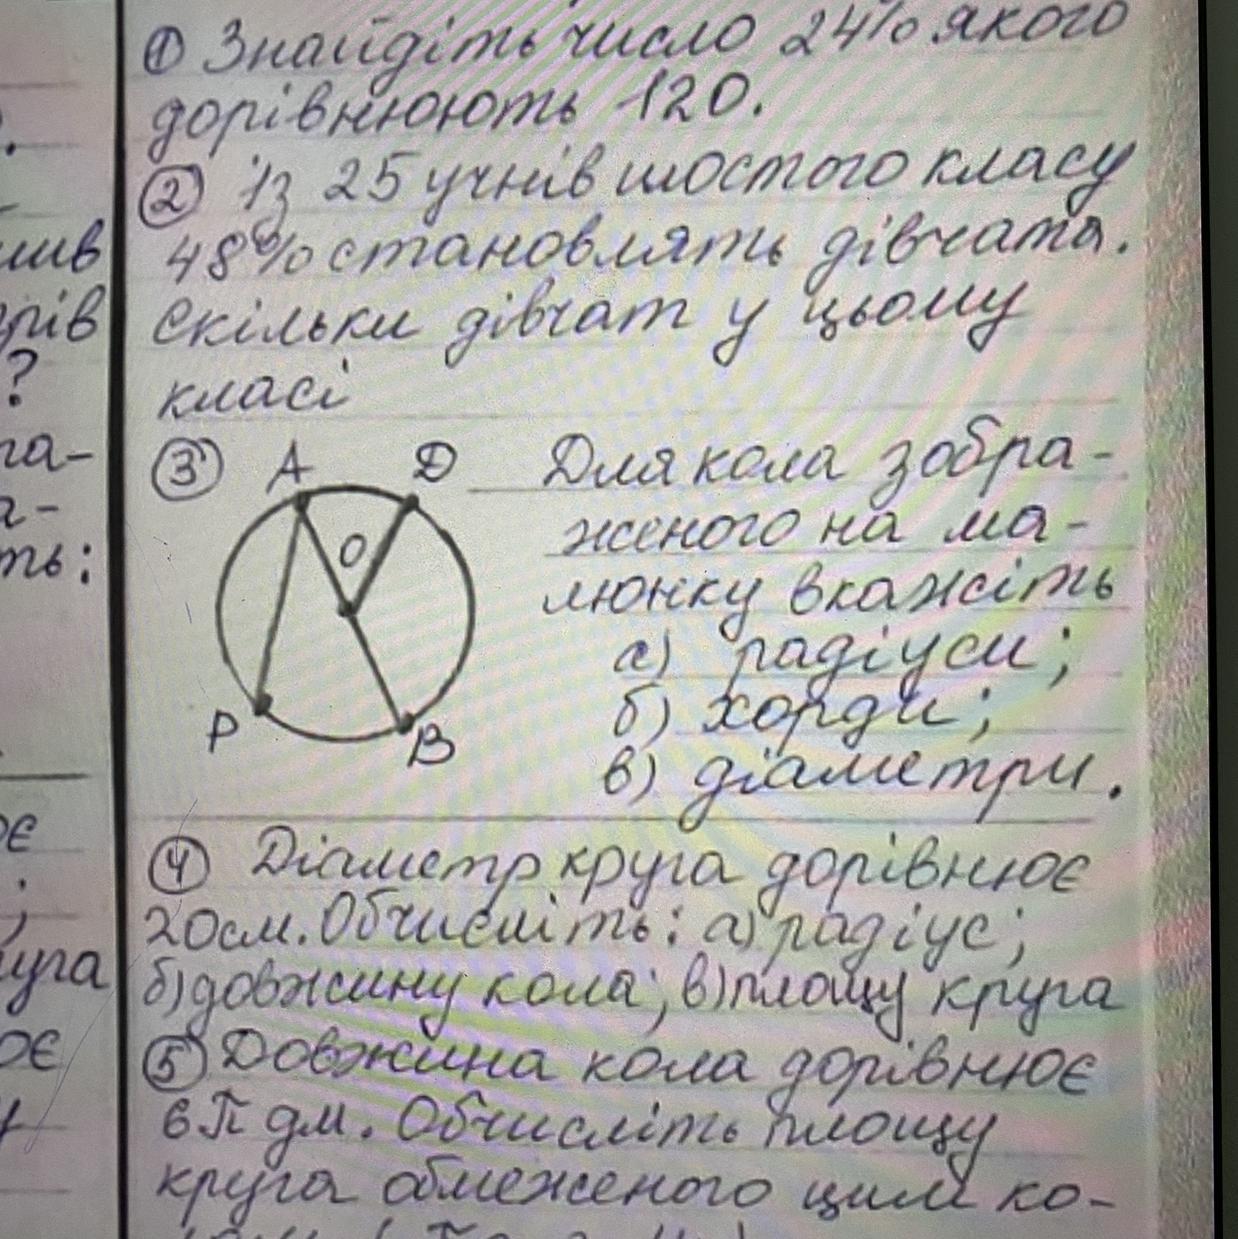 ① Знайдіть число 24% якого
дорівнюють 120.
② Із 25 учнів шостого класу
48% становлять дівчата.
Скільки дівчат у цьому
класі
③ A D Для кола зобра-
женого на ма-
O
люнку вкажіть
а) радіуси;
б) хорди;
P B
в) діаметри.
④ Діаметр круга дорівнює
20см. Обчисліть: а) радіус;
б) довжину кола; в) площу круга
⑤ Довжина кола дорівнює
6π дм. Обчисліть площу
круга обмеженого цим ко-
шив
рів
?
га-
а-
ть:
ює
;
руга
ює
у